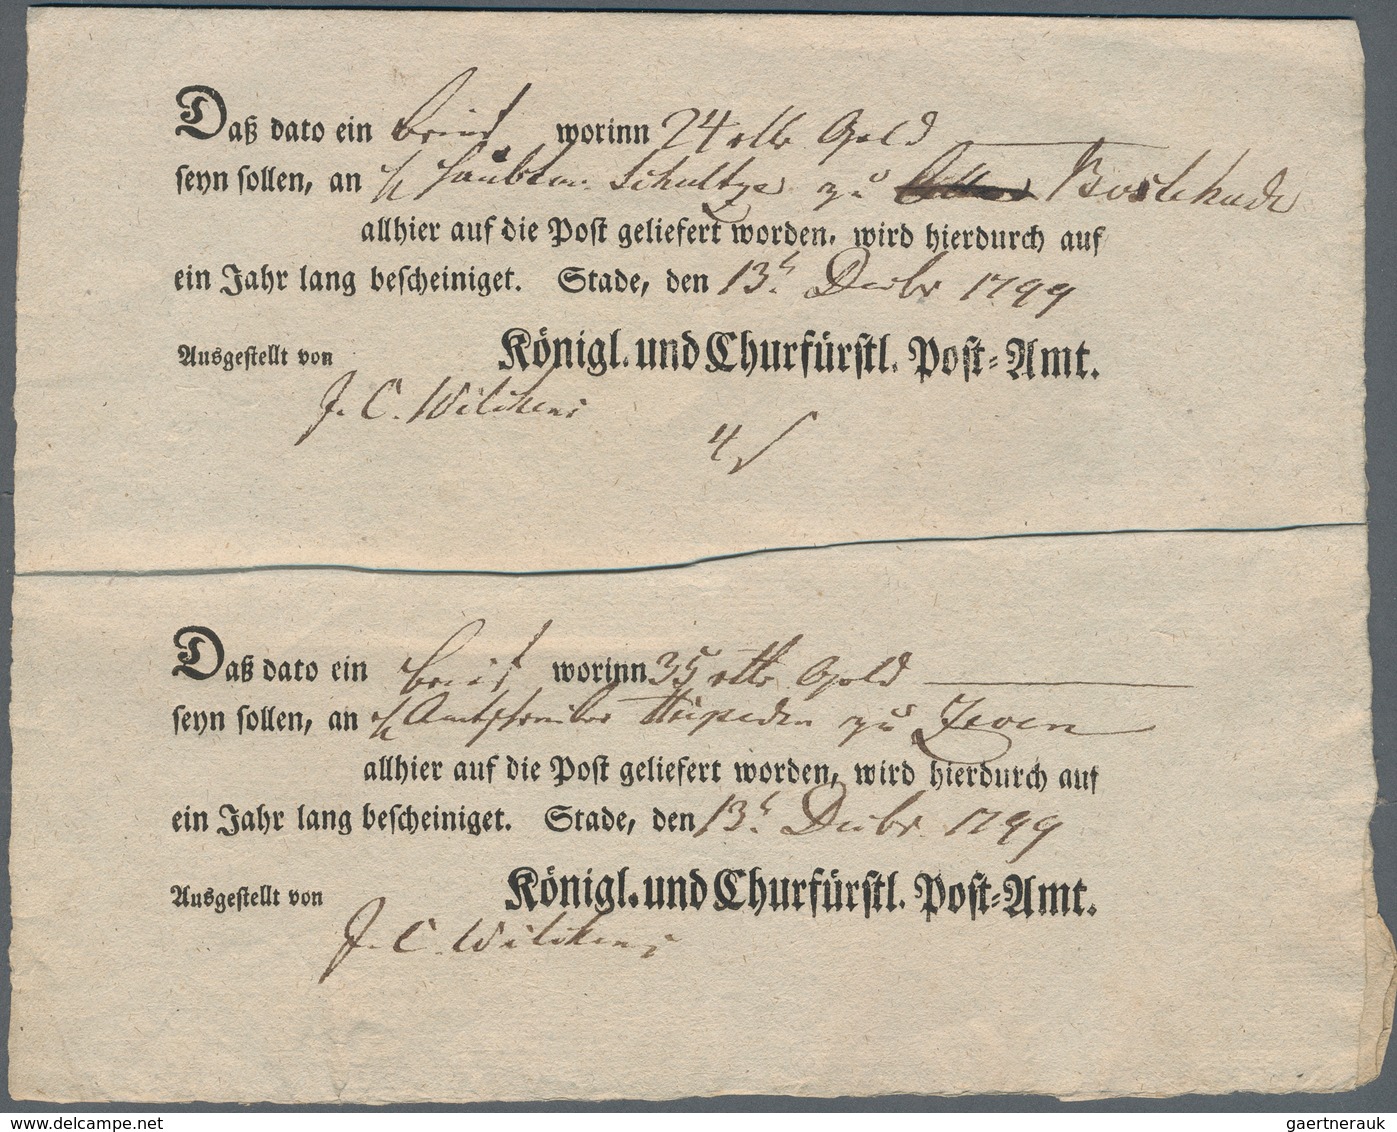 Daß dato ein Brief worinn 24 rtlr Gold
seyn sollen, an H Haubtm. Schultze zu Boxtehude
allhier auf die Post geliefert worden, wird hierdurch auf
ein Jahr lang bescheiniget. Stade, den 13t. Decbr 1799
Ausgestellt von Königl. und Churfürstl. Post-Amt.
J. C. Wilckens
4
Daß dato ein Brief worinn 35 rtlr Gold
seyn sollen, an H Amtschreiber zu Zeven
allhier auf die Post geliefert worden, wird hierdurch auf
ein Jahr lang bescheiniget. Stade, den 13t. Decbr 1799
Ausgestellt von Königl. und Churfürstl. Post-Amt.
J. C. Wilckens
gaertnerauk
www.delcampe.net